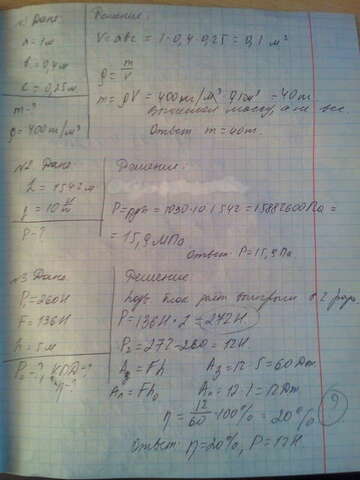 №1 Дано:
a = 1м
b = 0,4м
c = 0,25м
m - ?
ρ = 400 кг/м³
Решение:
V = abc = 1·0,4·0,25 = 0,1 м³
ρ = m/V
m = ρV = 400 кг/м³ · 0,1м³ = 40
массу, а не вес
Ответ: m = 40
№2 Дано:
h = 1542 м
P - ?
Решение:
P = ρgh = 1030·10·1542 = 15882600 Па =
= 15,9 МПа
Ответ: P = 15,9 Па.
№3 Дано:
P₁ = 260 Н
F = 136 Н
h = 5 м
P₂ - ?, КПД - ?
η - ?
Решение:
блок даёт выигрыш в 2 раза
P = 136Н · 2 = 272 Н.
P₂ = 272 - 260 = 12 Н
A = Fh A = 12·5 = 60 Дж
Aп = Fh Aп = 12·1 = 12 Дж
η = 12/60 · 100% = 20%
Ответ: η = 20%, P = 12 Н